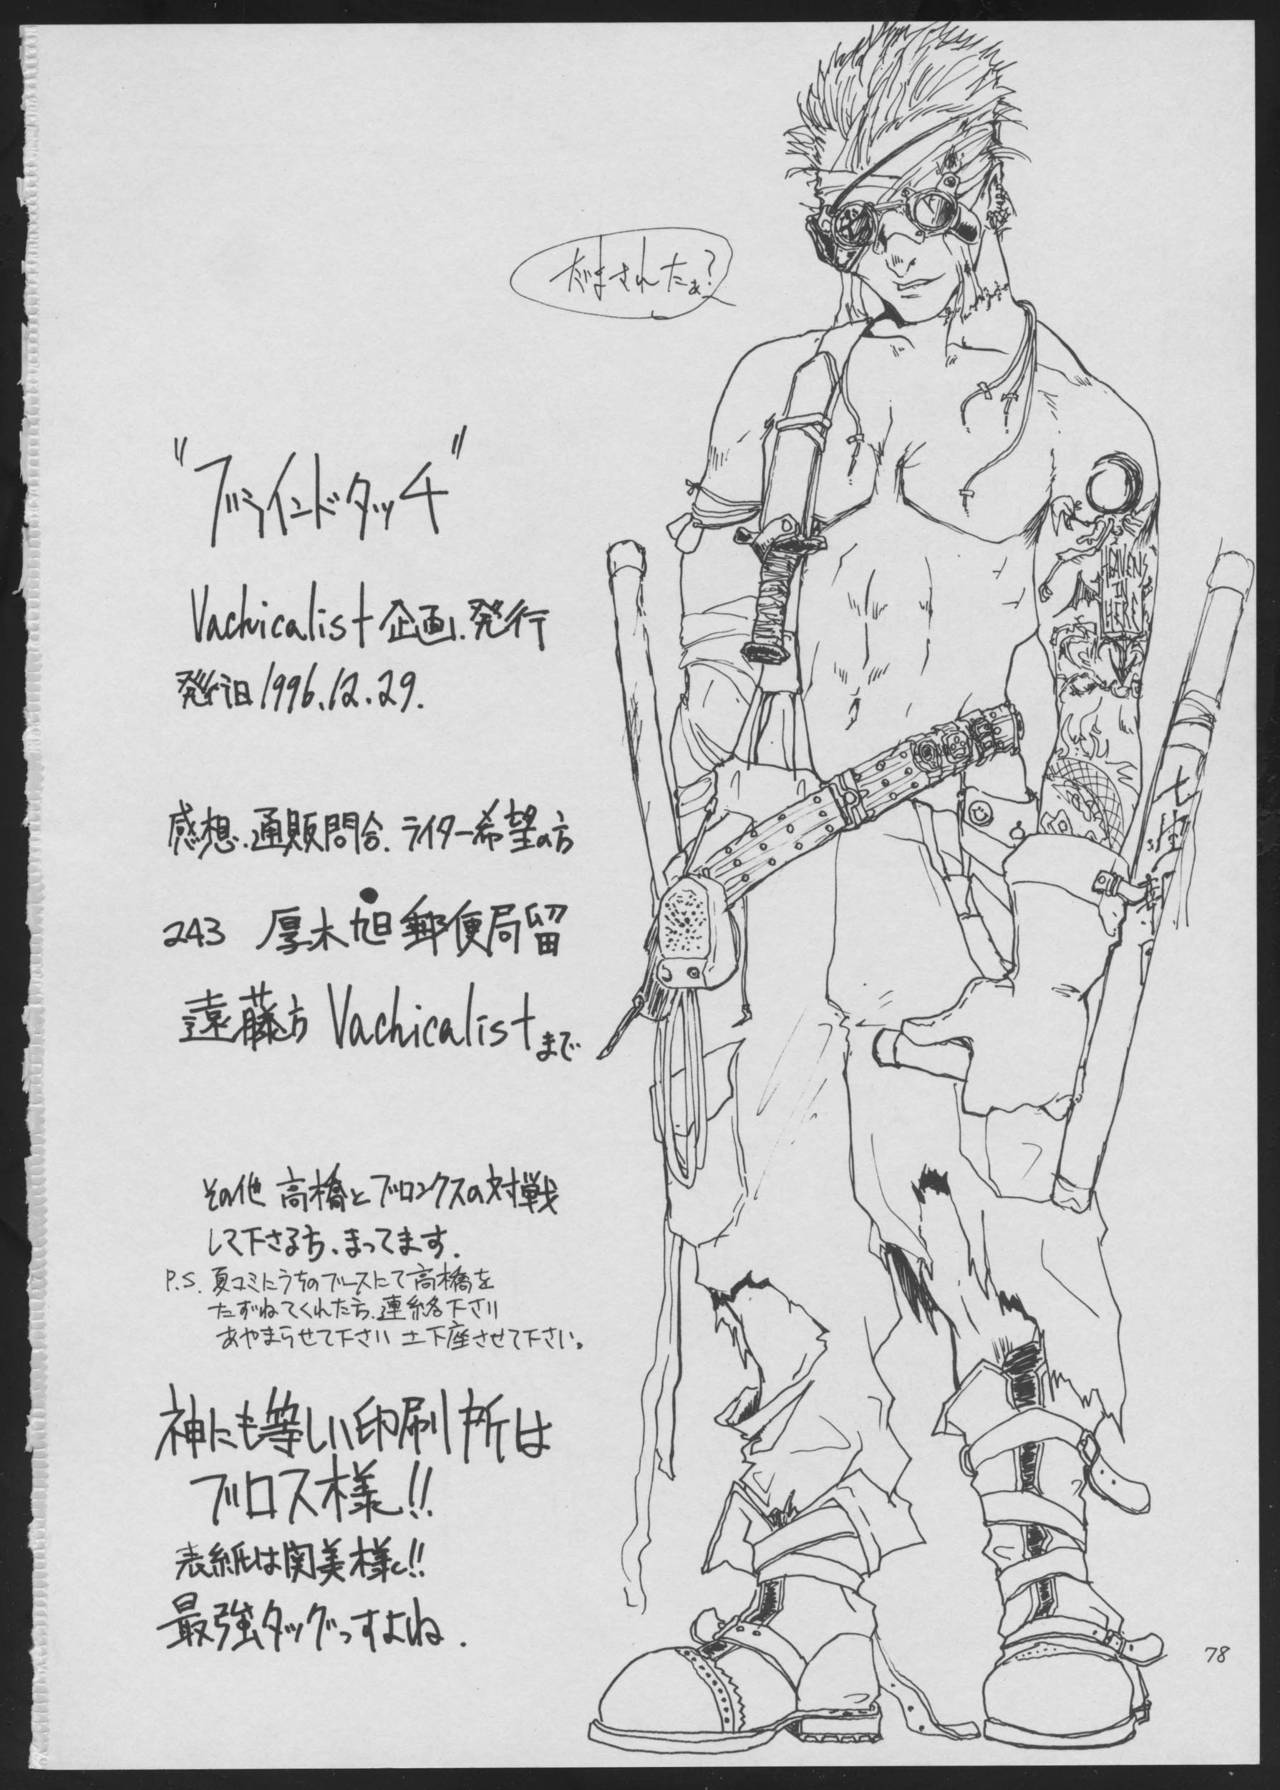 だまされたぁ?
"ブラインドタッチ"
Vachicalist 企画.発行
発行日 1996.12.29.
感想.通販問合.ライター希望の方
243 厚木旭郵便局留
遠藤方 Vachicalistまで
その他 高橋とブロンクスの対戦
して下さる方、まってます.
P.S. 夏コミにうちのブースにて高橋を
たずねてくれた方.連絡下さい
あやまらせて下さい 土下座させて下さい。
神にも等しい印刷所は
ブロス様!!
表紙は関美様!!
最強タッグっすよね.
HEAVENS
IN
HERE
78